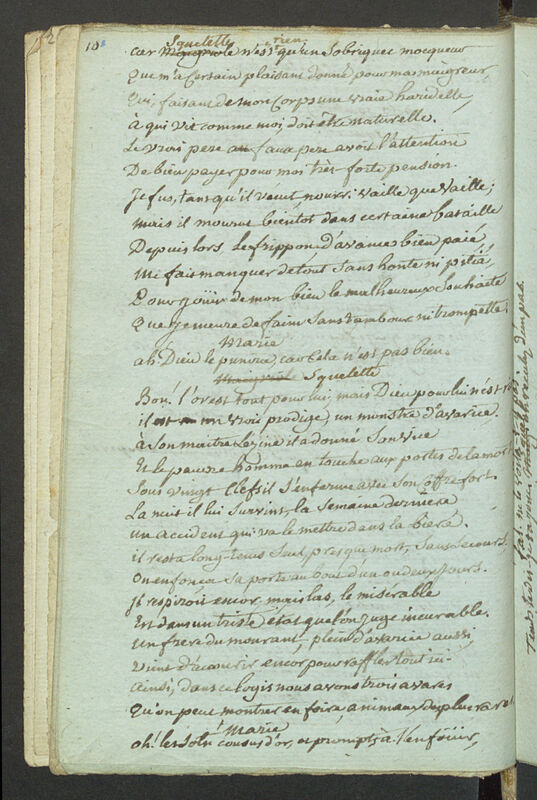 10
Squelette rien
car Maigriole n'est qu'un Sobriquet mocqueur
Que m'a Certain plaisant donné pour ma maigreur
Qui, faisant de mon Corps une vraie haridelle,
à qui vit comme moi doit être naturelle.
Le vrai pere au faux pere avoit l'attention
De bien payer pour moi très-forte pension.
Je fus, tant qu'il vécut nourri vaille que vaille;
Mais il mourut bientot dans certaine bataille
Depuis lors Le frippon d'avance bien paié
Me fait manquer de tout sans honte ni pitié,
Pour joüir de mon bien le malheureux Souhaite
Que je meure de faim Sans tambour ni trompette.
Marie
ah! Dieu le punira, car Cela n'est pas bien.
Squelette
Bon! l'or est tout pour lui, mais Dieu pour lui n'est rien
il est un vrai prodige, un monstre d'avarice.
à Son maitre Lézine il a donné Son vice
Et le pauvre homme en touche aux portes de la mort
Sous vingt Clefs il S'enferme avec Son Coffre fort.
La nuit il lui Survint, la Semaine derniere
Un accident qui va le mettre dans la biere.
il resta long-tems Seul, presque mort, Sans Secours
On enfonça Sa porte au bout d'un ou deux jours.
Il respiroit encor. mais las, le misérable
Est dans un triste état que l'on juge incurable.
un frere du mourant, plein d'avarice aussi,
vient d'accourir encor pour raffler tout ici.
Ainsi, dans ce logis nous avons trois avares
Qu'on peut montrer en foire, animaux des plus rares
Marie
oh! les Sots cousus d'or, et prompts à l'enfoüir,